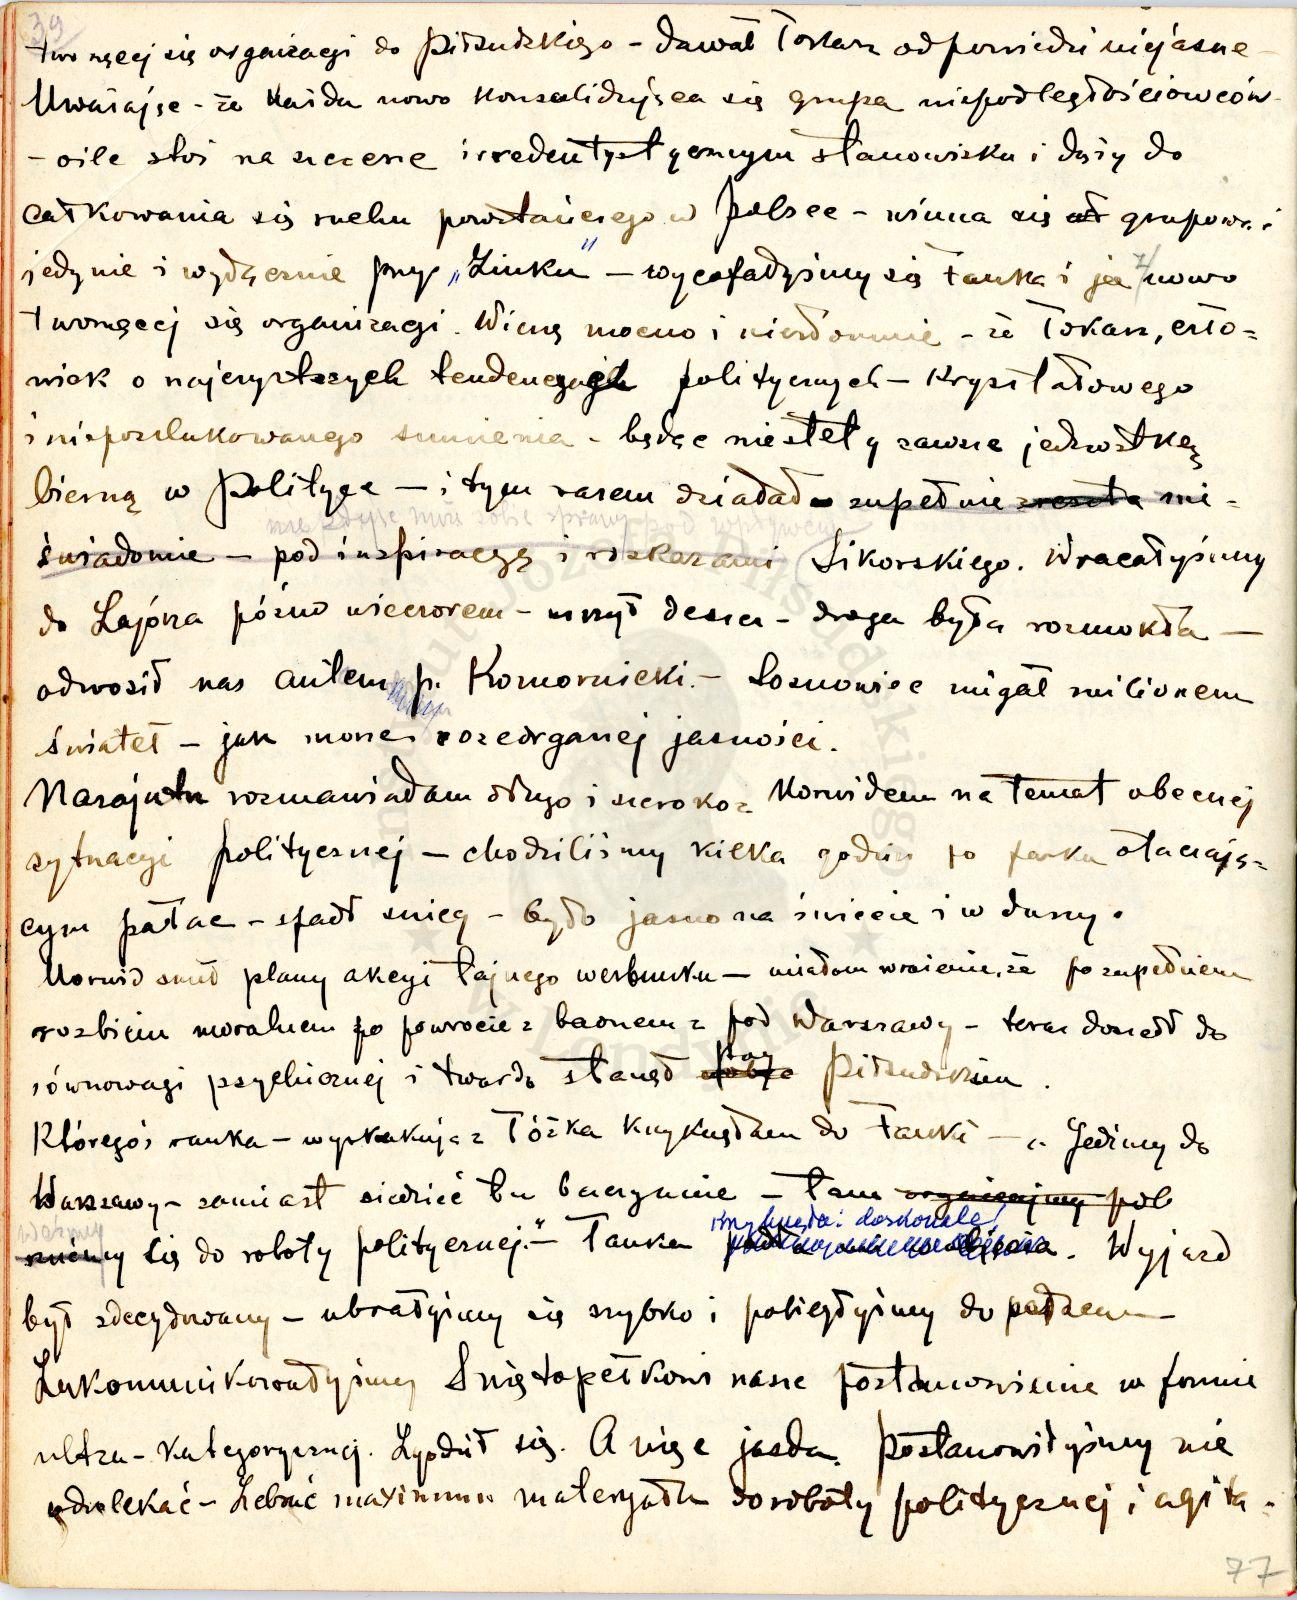 39
tworzącej się organizacji do Piłsudskiego – dawał Tokarz odpowiedzi niejasne –
Uważając – że każda nowo konsolidująca się grupa niepodległościowców –
– o ile stoi na szczerze irredentystycznym stanowisku i dąży do
całkowania się ruchu powstańczego w Polsce – winna się grupować
jedynie i wyłącznie przy „Ziuku" – wycofałyśmy się Tanka i ja z nowo
tworzącej się organizacji. Wierzę mocno i niezłomnie – że Tokarz, czło=
wiek o najczystszych tendencjach politycznych – kryształowego
i nieposzlakowanego sumienia – będąc niestety zawsze jednostką
bierną w polityce – i tym razem działał zupełnie zresztą nie=
nie zdając może sobie sprawy pod wpływem
świadomie – pod inspiracją i rozkazami Sikorskiego. Wracałyśmy
do Zajórza późno wieczorem – deszcz – droga była rozmokła –
odwoził nas autem p. Komornicki. – Sosnowiec migał milionem
świateł – jak morze rozedrganej jasności.
Nazajutrz rozmawiałam długo i szeroko z Norwidem na temat obecnej
sytuacji politycznej – chodziliśmy kilka godzin po parku otaczają=
cym pałac – spadł śnieg – było jasno na świecie i w duszy.
Norwid snuł plany akcji tajnego werbunku – miałam wrażenie, że po zupełnem
rozbiciu moralnem po powrocie z baonem z pod Warszawy – teraz doszedł do
równowagi psychicznej i twardo stanął przy Piłsudskim.
Któregoś ranka – wyskakując z łóżka krzyknęłam do Tanki – „Jedźmy do
Warszawy – zamiast siedzieć tu bezczynnie – tam organizujmy
weźmy się do roboty politycznej." – Tanka krzyknęła: doskonale! Wyjazd
był zdecydowany – ubrałyśmy się szybko i pobiegłyśmy do
Zakomunikowałyśmy Świętopełkowi nasze postanowienie w formie
ultra-kategorycznej. Zgodził się. A więc jazda. Postanowiłyśmy nie
zwlekać – Zebrać maximum materjału do roboty politycznej i agita=
77
Instytut Józefa Piłsudskiego w Londynie